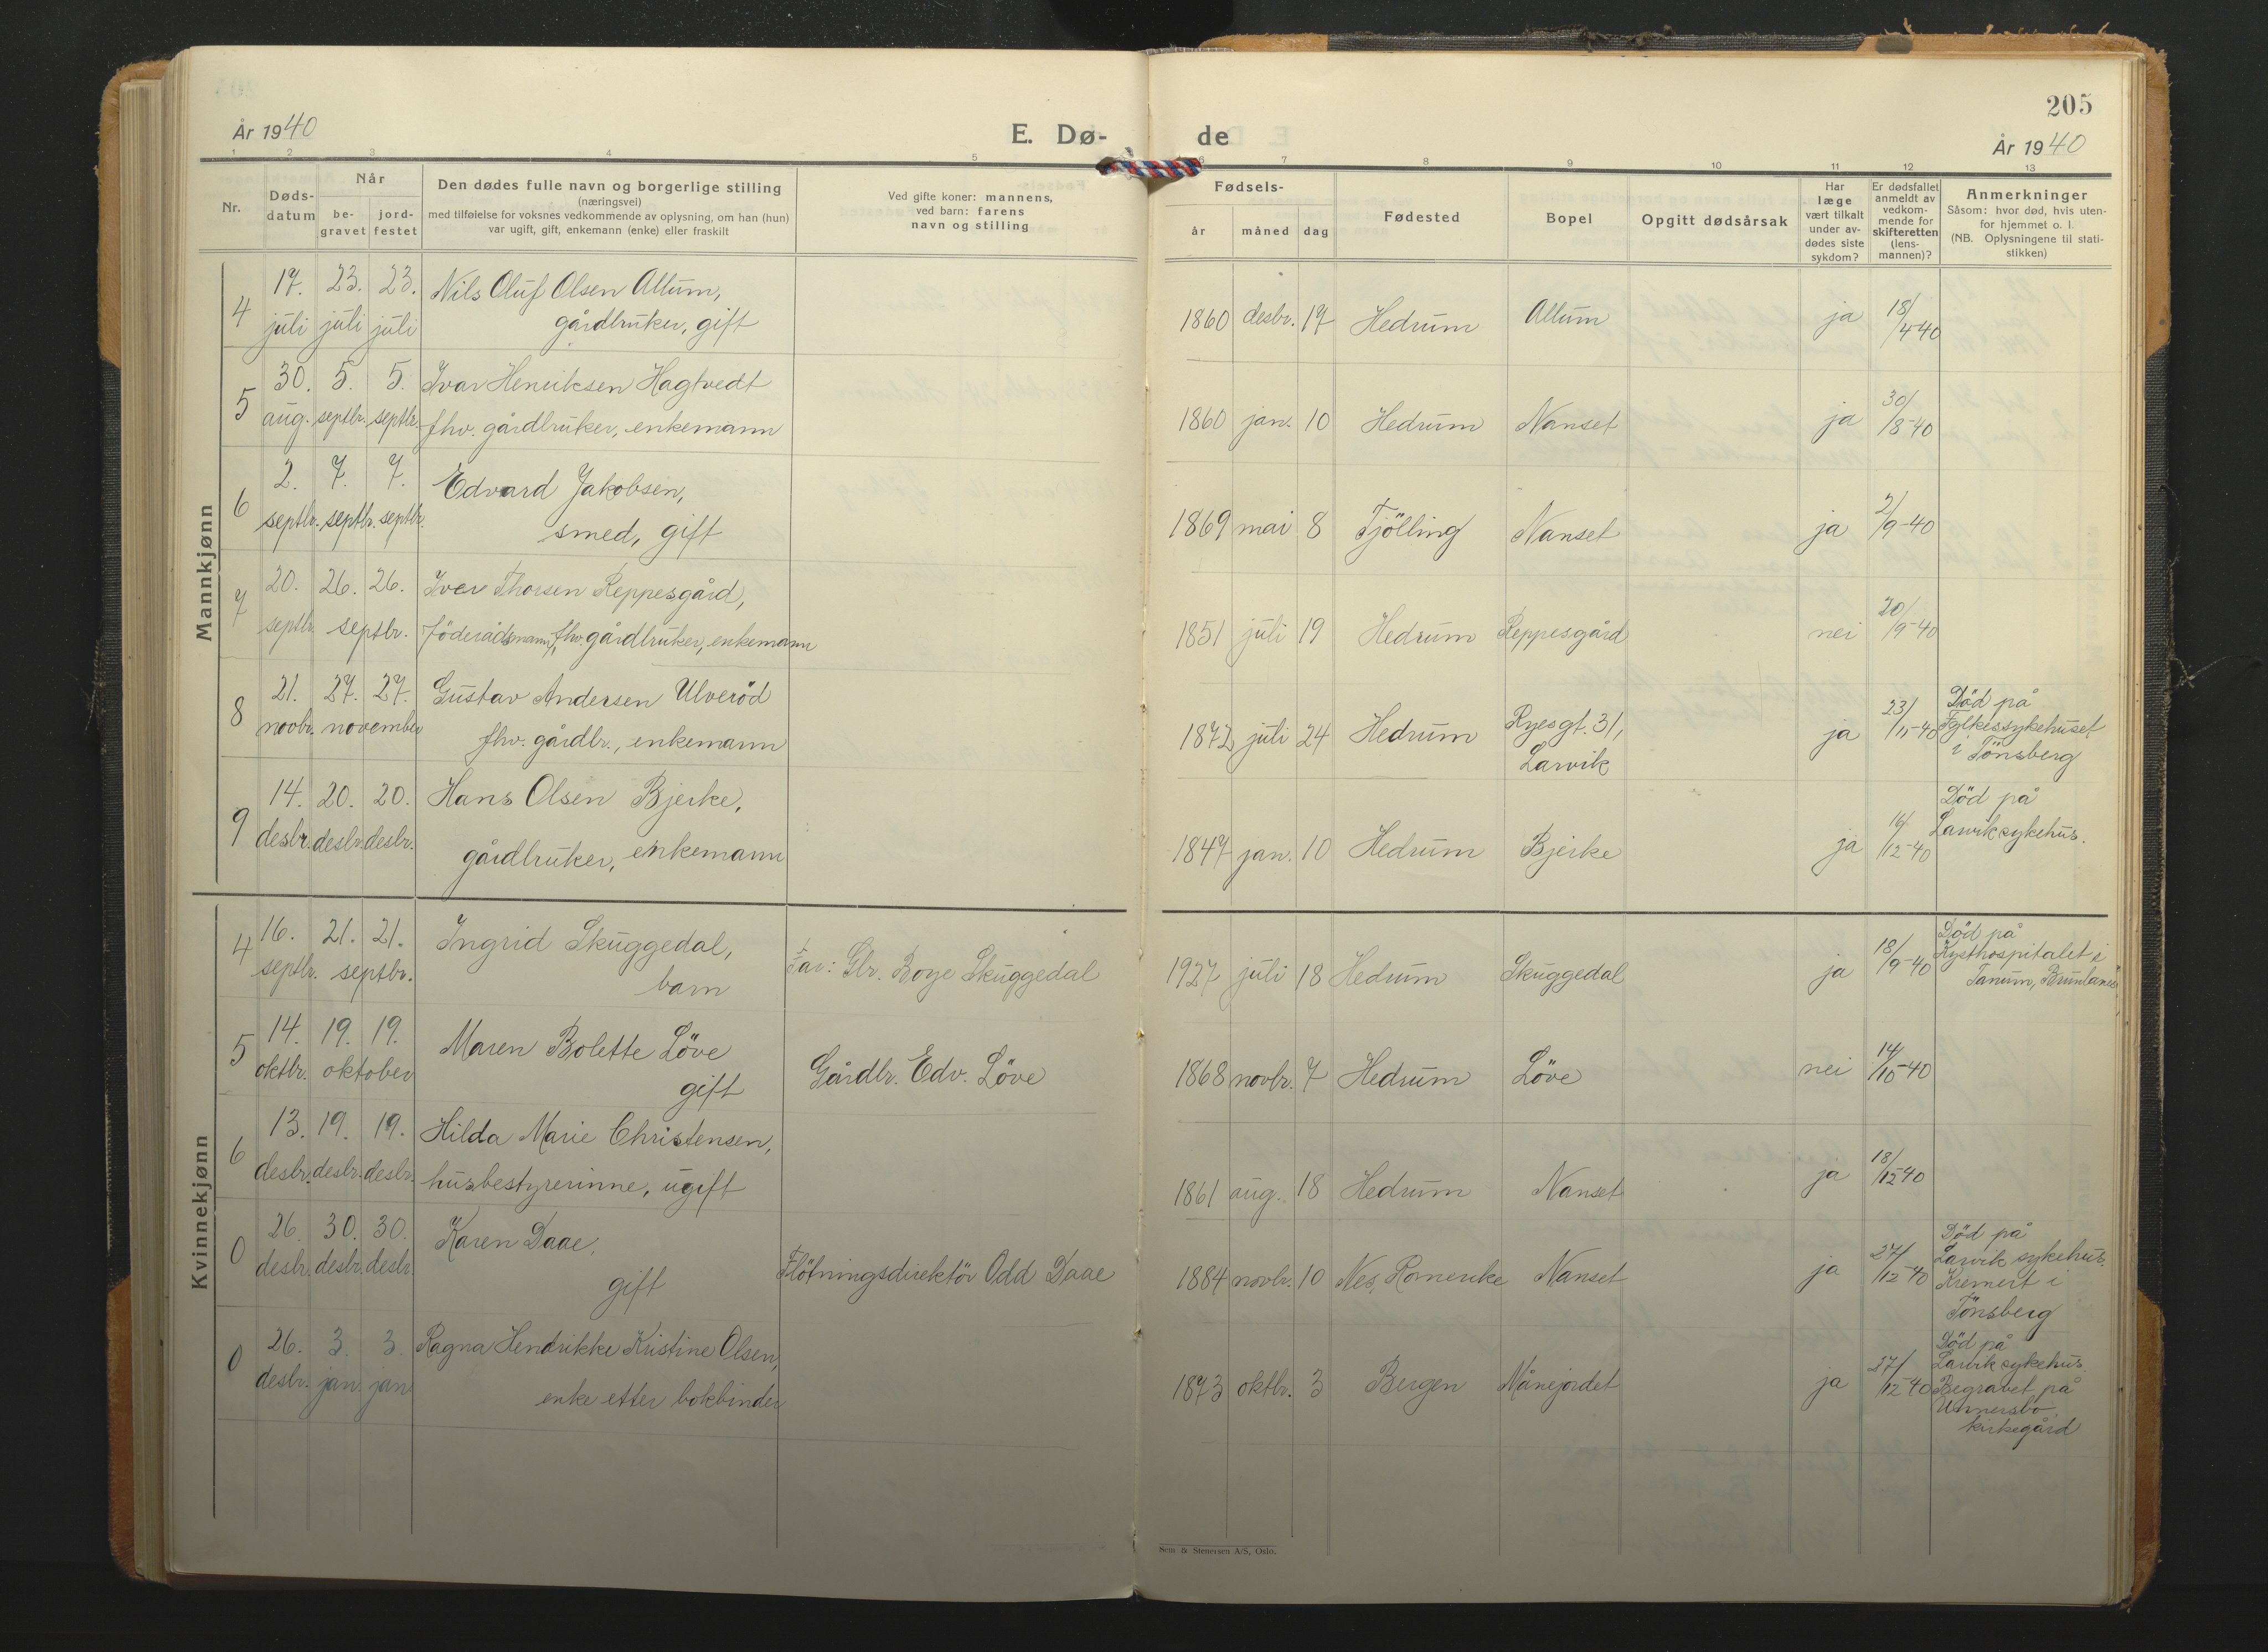 205
År 1940
E. Dø-
de
År 1940
1 2 3 4 5 6 7 8 9 10 11 12 13
Nr.
Døds-
datum
Når
be-
gravet
jord-
festet
Den dødes fulle navn og borgerlige stilling
(næringsvei)
med tilføielse for voksnes vedkommende av oplysning, om han (hun)
var ugift, gift, enkemann (enke) eller fraskilt
Ved gifte koner: mannens,
ved barn: farens
navn og stilling
Fødsels-
år måned dag
Fødested
Bopel
Opgitt dødsårsak
Har
læge
vært tilkalt
under av-
dødes siste
sykdom?
Er dødsfallet
anmeldt av
vedkom-
mende for
skifteretten
(lens-
mannen)?
Anmerkninger
Såsom: hvor død, hvis uten-
for hjemmet o. l.
(NB. Oplysningene til stati-
stikken)
Mannkjønn
4 17. juli 23. juli 23. juli Nils Oluf Olsen Allum,
gårdbruker, gift
1860 desbr. 17 Hedrum Allum ja 18/4-40
5 30. aug. 5. septbr. 5. septbr. Ivar Henriksen Hagtvedt
fhv. gårdbruker, enkemann
1860 jan. 10 Hedrum Nanset ja 30/8-40
6 2. septbr. 7. septbr. 7. septbr. Edvard Jakobsen,
smed, gift
1869 mai 8 Tjölling Nanset ja 2/9-40
7 20. septbr. 26. 26. septbr. Iver Thorsen Reppesgård,
föderådsmann, fhv. gårdbruker, enkemann
1851 juli 19 Hedrum Reppesgård nei 20/9-40
8 21. novbr. 27. 27. november Gustav Andersen Ulveröd
fhv. gårdbr., enkemann
1872 juli 24 Hedrum Ryesgt. 31,
Larvik
ja 23/11-40
Död på
Fylkessykehuset
i Tönsberg
9 14. desbr. 20. desbr. 20. desbr. Hans Olsen Bjerke,
gårdbruker, enkemann
1847 jan. 10 Hedrum Bjerke ja 16/12-40
Död på
Larvik sykehus.
Kvinnekjønn
4 16. septbr. 21. 21. septbr. Ingrid Skuggedal,
barn
Far: Gbr. Boye Skuggedal
1927 juli 18 Hedrum Skuggedal ja 18/9-40
Död på
Kysthospitalet i
Tanum, Brunlanes
5 14. oktbr. 19. 19. oktober Maren Bolette Löve
gift
Gårdbr. Edv. Löve
1868 novbr. 7 Hedrum Löve nei 14/10-40
6 13. desbr. 19. desbr. 19. desbr. Hilda Marie Christensen,
husbestyrerinne, ugift
1861 aug. 18 Hedrum Nanset ja 18/12-40
0 26. desbr. 30. desbr. 30. desbr. Karen Daae,
gift
Flötningsdirektör Odd Daae
1884 novbr. 10 Nes, Romerike Nanset ja 27/12-40
Död på
Larvik sykehus.
Kremert i
Tönsberg
0 26. desbr. 3. jan. 3. jan. Ragna Hendrikke Kristine Olsen,
enke etter bokbinder
1873 oktbr. 3 Bergen Månejordet ja 27/12-40
Död på
Larvik sykehus
Begravet på
Undersbo
kirkegård
Sem & Stenersen A/S, Oslo.